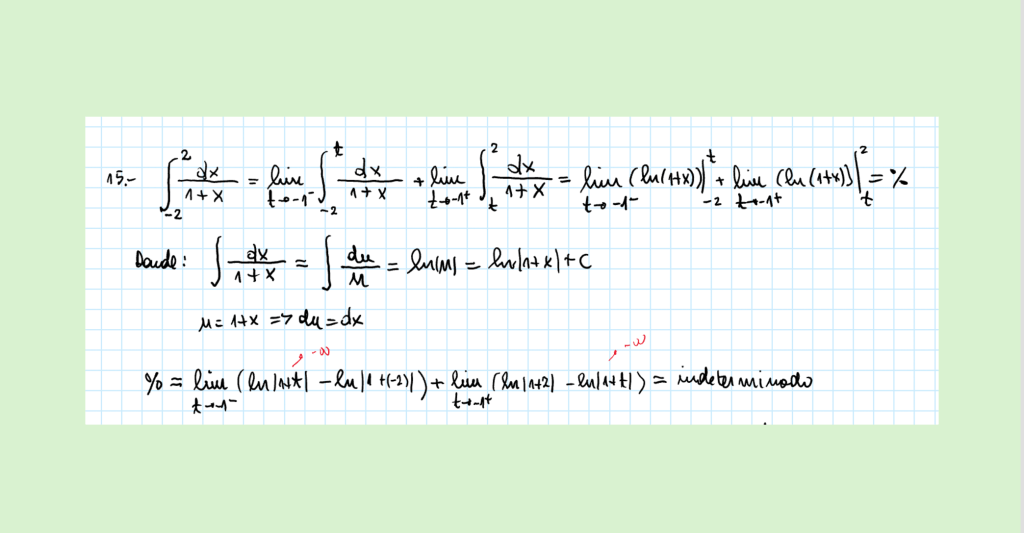 15.- ∫_{-2}^{2} dx/(1+x) = lim_{t→-1⁻} ∫_{-2}^{t} dx/(1+x) + lim_{t→-1⁺} ∫_{t}^{2} dx/(1+x) = lim_{t→-1⁻} (ln(1+x))|_{-2}^{t} + lim_{t→-1⁺} (ln(1+x))|_{t}^{2} = %
Donde: ∫ dx/(1+x) = ∫ du/u = ln|u| = ln|1+x| + C
u = 1+x => du = dx
-∞ -∞
% = lim_{t→-1⁻} (ln|1+t| - ln|1+(-2)|) + lim_{t→-1⁺} (ln|1+2| - ln|1+t|) = indeterminado